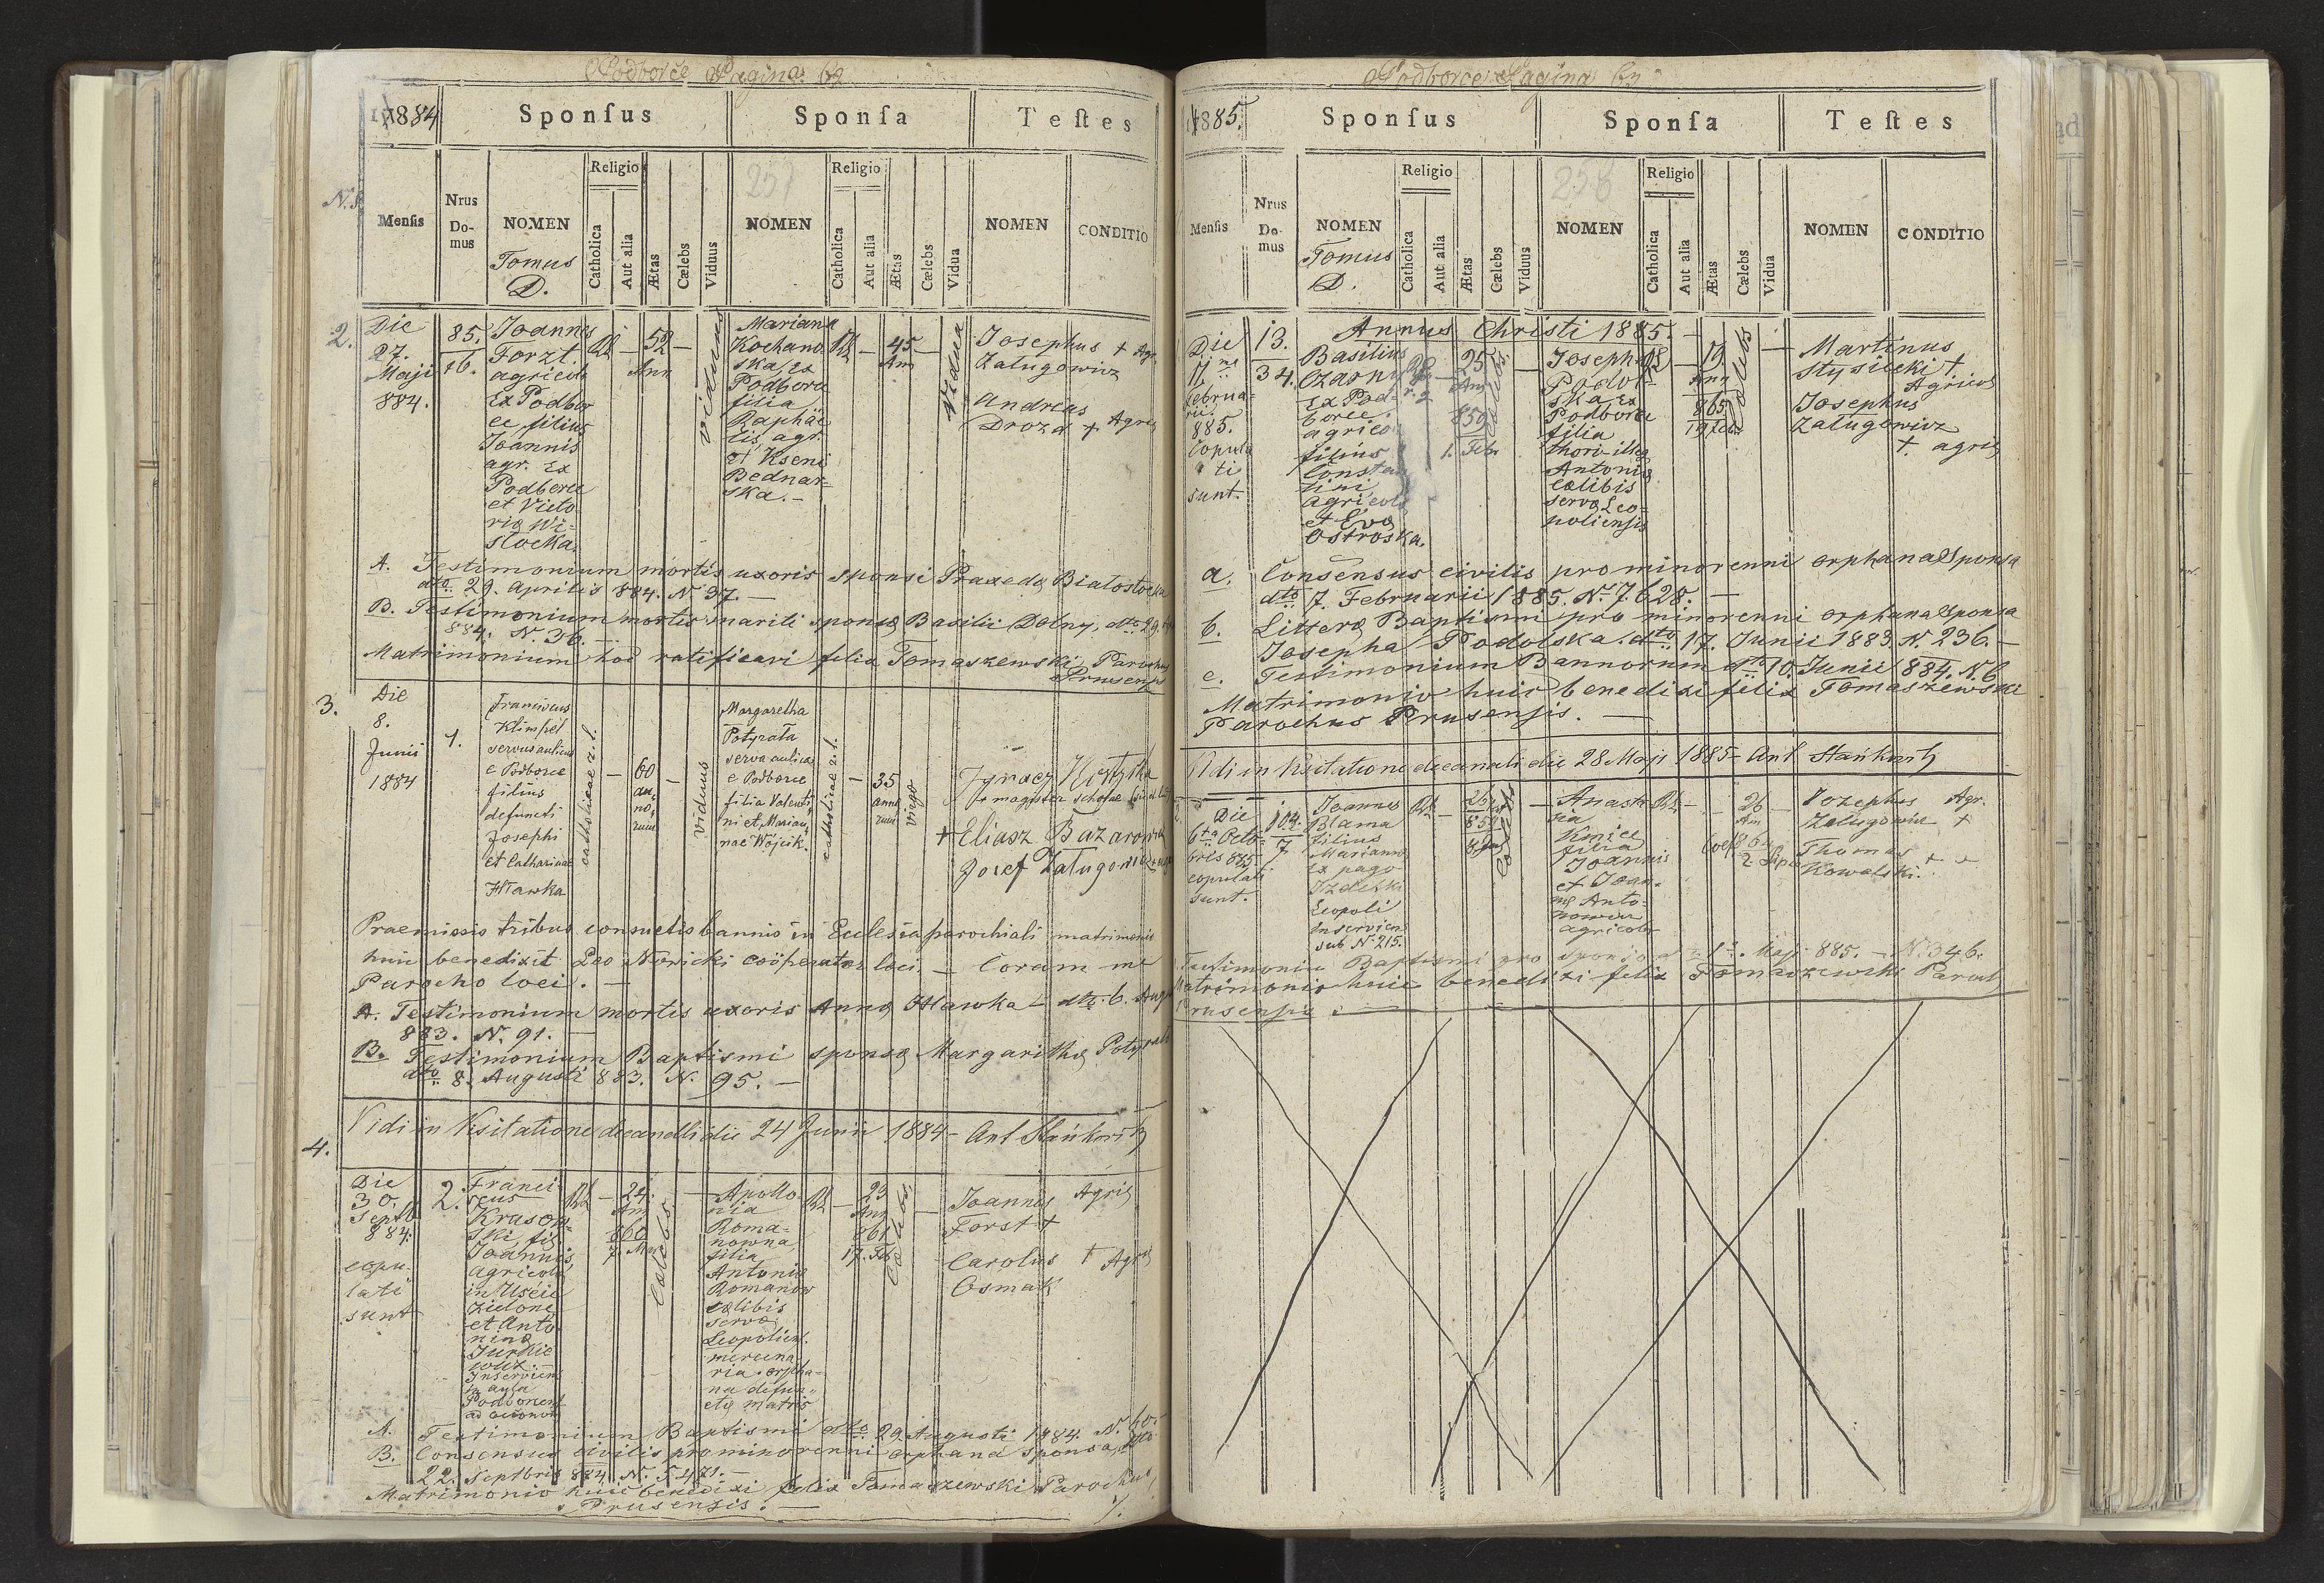 Podborce Pagina 62
1884
Sponsus
Sponsa
Testes
N.S.
Mensis
Nrus
Do-
mus
NOMEN
Tomus
D.
Religio
Catholica
Aut alia
Ætas
Cælebs
Viduus
NOMEN
Religio
Catholica
Aut alia
Ætas
Cælebs
Vidua
NOMEN
CONDITIO
2.
Die
27.
Maji
884.
85.
16.
Joannes
Forzt
agricola
Ex Podbor
ce filius
Joannis
agr. Ex
Podborce
et Victo
ria Wi-
slocka.
52
Ann
viduus
Mariana
Kochano
ska, ex
Podborce
filia
Raphae
lis, agr.
et Kseni
Bednar-
ska. –
45
Ann
Vidua
Josephus + Agr.
Zalugowicz
Andreas
Drozd + Agric
A. Testimonium mortis uxoris sponsi Praxeda Bialostocka
dto 29. Aprilis 884. N. 37. –
B. Testimonium mortis mariti sponsa Basilii Dolny, dto 29.
884. N. 36. –
Matrimonium hoc ratificavi felix Tomaszewski Parochus
Prusensis
3.
Die
8.
Junii
1884
1.
Franciscus
Klimpel
servus aulicus
e Podborce
filius
defuncti
Josephi
et Catharinae
Hlawka
catholicae r. l.
60
an
no
rum
viduus
Margaretha
Potyrała
serva aulica
e Podborce
filia Valenti
ni et Marian
nae Wójcik.
catholicae r. l.
35
anno
rum
virgo
Ignacy
+ magister scholae
+ Eliasz Bazarowicz
Josef Zalugowicz
Praemissis tribus consuetis bannis in Ecclesia parochiali matrimonio
huic benedixit Leo Nowicki coöperator loci – Coram me
Parocho loci. –
A. Testimonium mortis uxoris Anna Hlawka – dto. 6. Aug
883. N. 91. –
B. Testimonium Baptismi sponsa Margaritha Potyrala
dto 8. Augusti 883. N. 95. –
Vidi in Visitatione decanali die 24 Junii 1884 – Ant
4.
Die
30.
Septb
884.
copu-
lati
sunt
2.
Franci-
scus
Krasow-
ski, fil
Joannis,
agricola
in Uście
Zielone
et Anto
nina
Jurkie
wicz. –
Inserviens
in aula
Podborcen
24.
Ann
860
7. Mar
Cælebs
Apollo
nia
Roma-
nowna
filia
Antonia
Romanow
cælibis
serva
Leopolien.
mercena
ria orpha-
na defun-
cta matris
23
Ann
861
17. Feb
Cælebs
Joannes Agric
Forst +
Carolus + Agric
Osmak
A. Testimonium Baptismi dto 29 Augusti 1884. N. 60.
B. Consensus civilis pro minorenni orphana sponsa, dto
22. Septbris 884. N. 5471. –
Matrimonio huic benedixi felix Tomaszewski Parochus,
Prusensis. –
Podborce Pagina 63
1885.
Sponsus
Sponsa
Testes
Mensis
Nrus
Do-
mus
NOMEN
Tomus
D.
Religio
Catholica
Aut alia
Ætas
Cælebs
Viduus
NOMEN
Religio
Catholica
Aut alia
Ætas
Cælebs
Vidua
NOMEN
CONDITIO
Annus Christi 1885. –
Die
Februa-
rii
885.
Copula
ti
sunt.
13.
34.
Basilius
Czarny
Ex Pod-
borce.
agricol
filius
Constan
tini
agricola
et Eva
Ostroska.
25
Ann
859
1. Febr
Josepha
Podol-
ska, Ex
Podborce
filia
thori-illeg
Antonia
cælibis
serva Leo-
poliensis
19
Ann
865
19 Febr
Cælebs
Martinus
Stysicki +
Agricol
Josephus
Zalugowicz
+ agric
a. Consensus civilis pro minorenni orphana sponsa
dto 7. Februarii 1885. N. 7628. –
b. Littera Baptismi pro minorenni orphana sponsa
Josepha Podolska. dto 17. Junii 1883. N. 236. –
c. Testimonium Bannorum dto 10. Junii 884. N. 6
Matrimonio huic benedixi felix Tomaszewski
Parochus Prusensis. –
Vidi in Visitatione decanali die 28 Maji 1885 – Ant
Die
6ta Octo-
bris 885.
copulati
sunt.
104.
7
Joannes
Blama
filius
Marianna
Ex pago
Leopoli
inservien
sub N. 215.
26
859
Anasta
sia
Kmiec
filia
Joannis
et Joan-
na Anto-
nowicz
agricola
26
Ann
Josephus Agr.
Zalugowicz +
Thomas
Kowalski. +
Testimonium Baptismi pro sponso Maji 885. – N. 346.
Matrimonio huic benedixi felix Tomaszewski Paroch
Prusensis. –